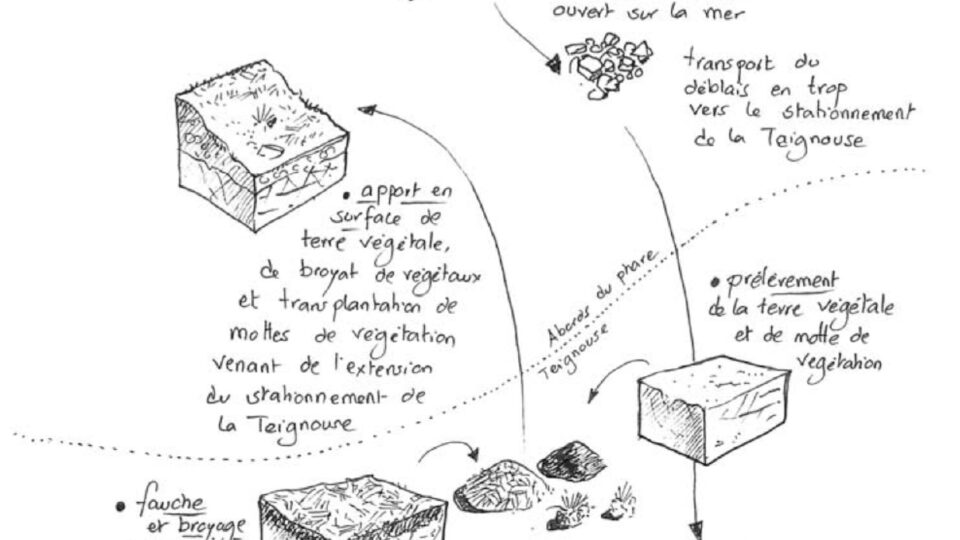 ouvert sur la mer
transport du
déblais en trop
vers le stationnement
de la Teignouse
• apport en
surface de
terre végétale,
de broyat de végétaux
et transplantation de
mottes de végétation
venant de l'extension
du stationnement de
la Teignouse
Abords du phare
Teignouse
• prélèvement
de la terre végétale
et de motte de
végétation
• fauche
et broyage